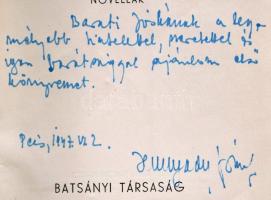 NOVELLÁK
Baráti Jóskának a leg-
mélyebb tisztelettel, szeretettel és
igaz barátsággal ajánlom első
könyvemet.
Pécs, 1947. VI. 2.
Hunyady József
BATSÁNYI TÁRSASÁG